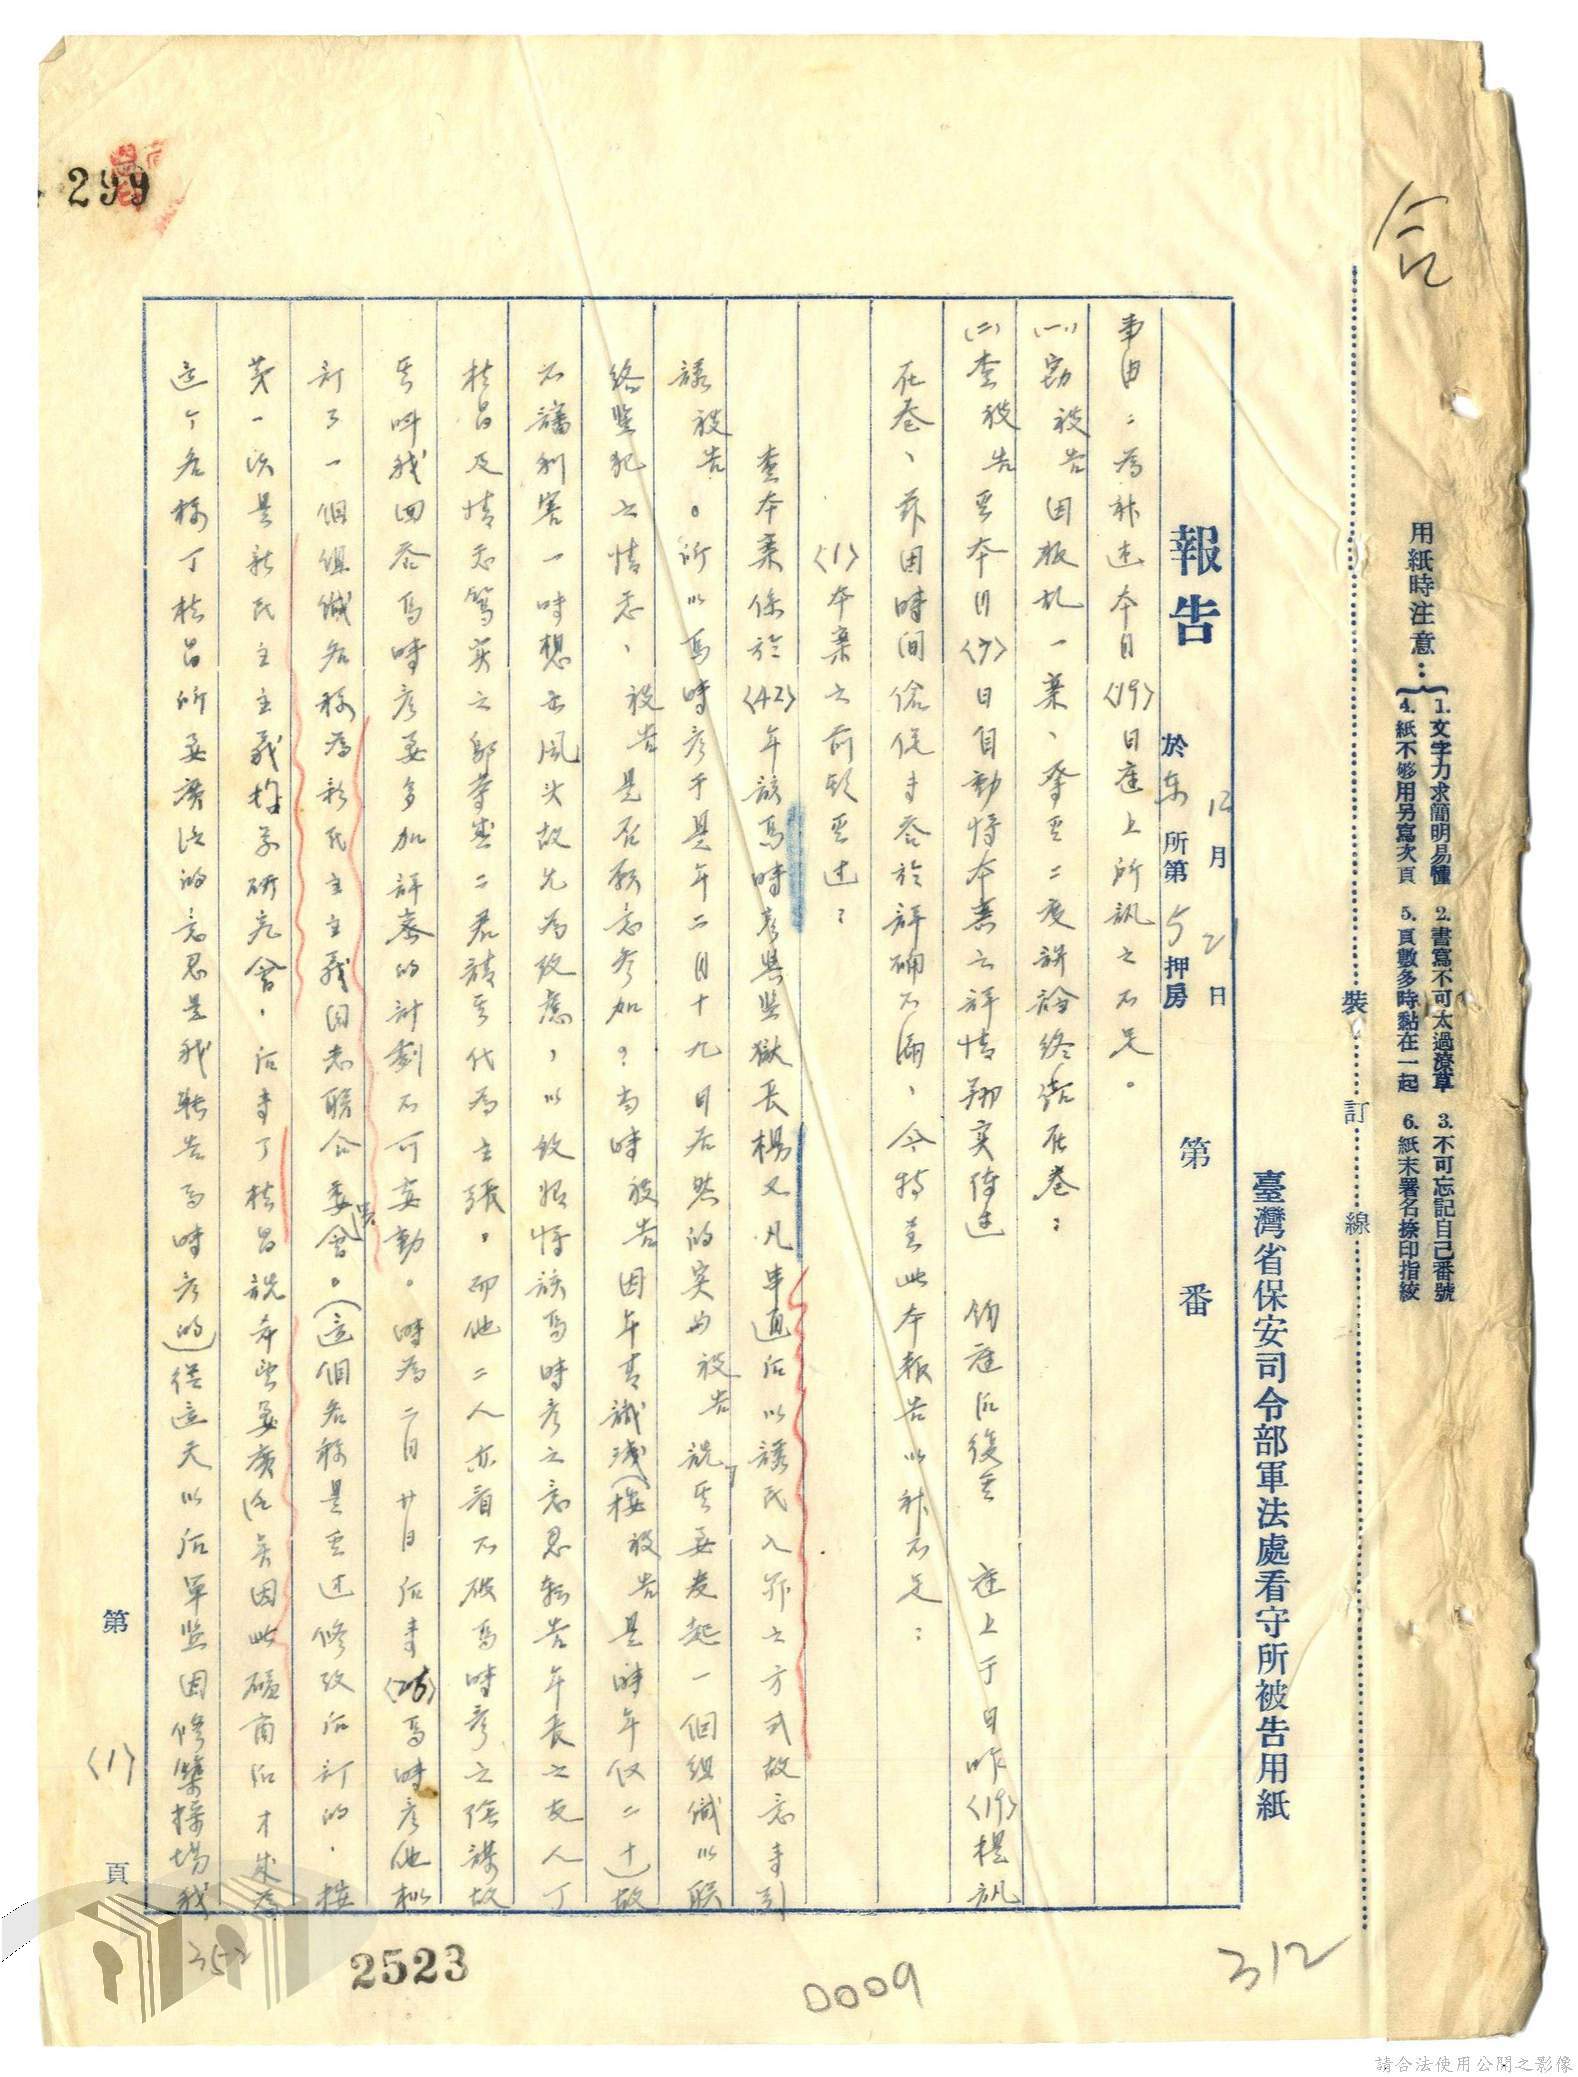 合
用紙時注意：
1. 文字力求簡明易懂 2. 書寫不可太過潦草 3. 不可忘記自己番號
4. 紙不够用另寫次頁 5. 頁數多時黏在一起 6. 紙末署名捺印指紋
裝訂線
臺灣省保安司令部軍法處看守所被告用紙
12月21日
報告 於東所第5押房 第 番
事由：為補述本月〈19〉日庭上所訊之不足。
(一)竊被告因叛乱一案、奉至二度辯論終結在卷：
(二)查被告至本月〈7〉日自動將本案之詳情翔实待述 鈞庭后復至 庭上于日昨〈19〉提訊
在卷、茲因時间倉促書答於詳确不漏、今特呈此本報告以补不足：
〈1〉本案之前頭至述：
查本案係於〈42〉年該馮時彥與監獄長楊又凡串通后以誘民入罪之方式故意来引
誘被告。所以馮時彥于是年二月十九日居然的実向被告說其要发起一個組織以联
络监犯之情志、被告是否愿意参加？当時被告因年青識浅(按被告是時年仅二十)故
不諳利害一時想出風头故允為考慮，以致后將該馮時彥之意思転告年長之友人丁
桂昌及情志篤实之鄔 二君請其代為主張，而他二人亦看不破馮時彥之陰謀故
其叫我回答馮時彥要多加詳密的計劃不可妄動。時為二月廿日后来〈25〉馮時彥他 
訂了一個組織名称為新民主主義同志联合委員會。(這個名称是至述修改后訂的，按
第一次是新民主主義 研究會，后来丁桂昌說希望要廣泛 因此磋商后才成為
這个名稱丁桂昌所要廣泛的意思是我転告馮時彥的)從這天以后軍监因修築操場我
第〈1〉頁
299
352
2523
0009
312
請合法使用公開之影像